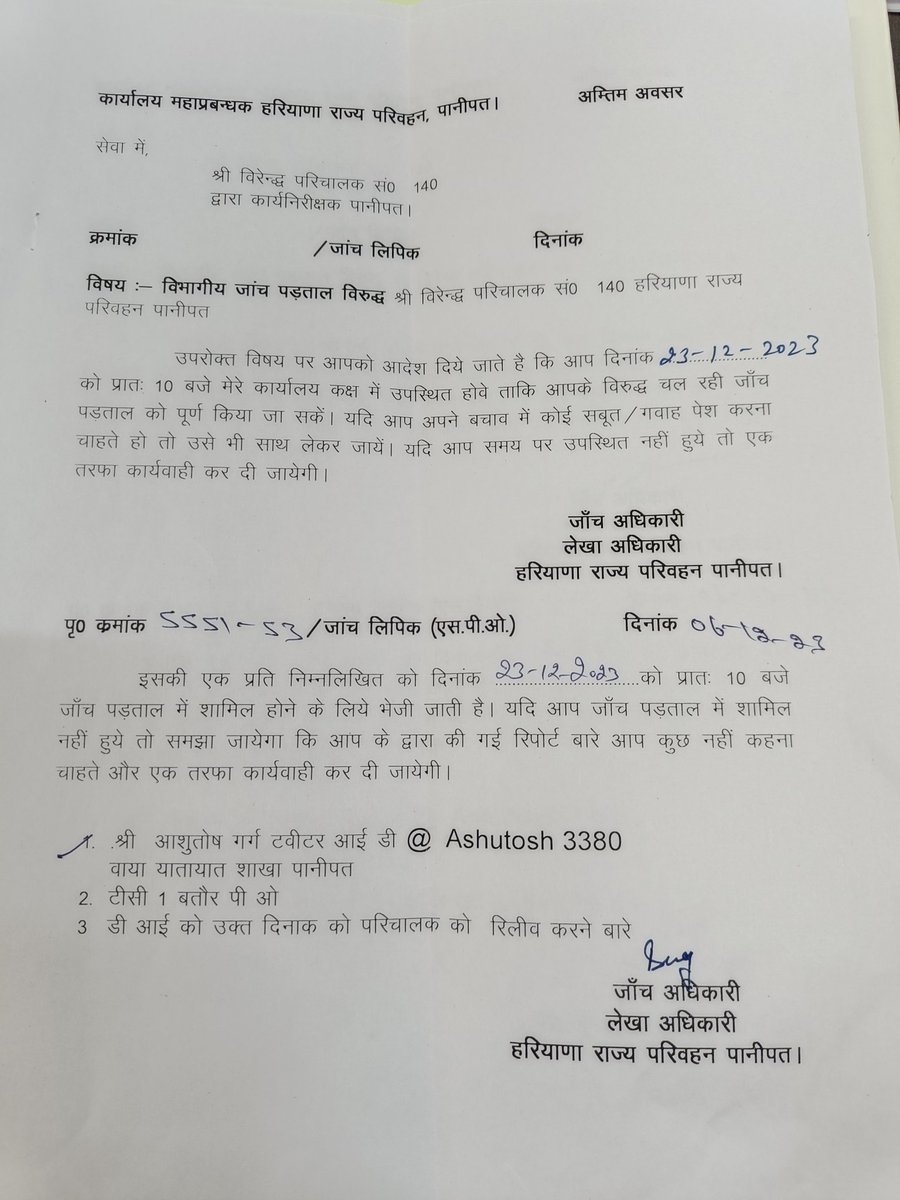 कार्यालय महाप्रबन्घक हरियाणा राज्य परिवहन, पानीपत। अम्तिम अवसर
सेवा में,
श्री विरेन्द्ध परिचालक सं0 140
द्वारा कार्यनिरीक्षक पानीपत।
क्रमांक /जांच लिपिक दिनांक
विषय :– विभागीय जांच पड़ताल विरुद्ध श्री विरेन्द्ध परिचालक सं0 140 हरियाणा राज्य
परिवहन पानीपत
उपरोक्त विषय पर आपको आदेश दिये जाते है कि आप दिनांक 23-12-2023
को प्रातः 10 बजे मेरे कार्यालय कक्ष में उपस्थित होवे ताकि आपके विरुद्ध चल रही जाँच
पड़ताल को पूर्ण किया जा सकें। यदि आप अपने बचाव में कोई सबूत/गवाह पेश करना
चाहते हो तो उसे भी साथ लेकर जायें। यदि आप समय पर उपस्थित नहीं हुये तो एक
तरफा कार्यवाही कर दी जायेगी।
जाँच अधिकारी
लेखा अधिकारी
हरियाणा राज्य परिवहन पानीपत।
पृ0 क्रमांक 5551-53 /जांच लिपिक (एस.पी.ओ.) दिनांक 06-12-23
इसकी एक प्रति निम्नलिखित को दिनांक 23-12-2023 को प्रातः 10 बजे
जाँच पड़ताल में शामिल होने के लिये भेजी जाती है। यदि आप जाँच पड़ताल में शामिल
नहीं हुये तो समझा जायेगा कि आप के द्वारा की गई रिपोर्ट बारे आप कुछ नहीं कहना
चाहते और एक तरफा कार्यवाही कर दी जायेगी।
1. .श्री आशुतोष गर्ग टवीटर आई डी @ Ashutosh 3380
वाया यातायात शाखा पानीपत
2. टीसी 1 बतौर पी ओ
3 डी आई को उक्त दिनाक को परिचालक को रिलीव करने बारे
जाँच अधिकारी
लेखा अधिकारी
हरियाणा राज्य परिवहन पानीपत।